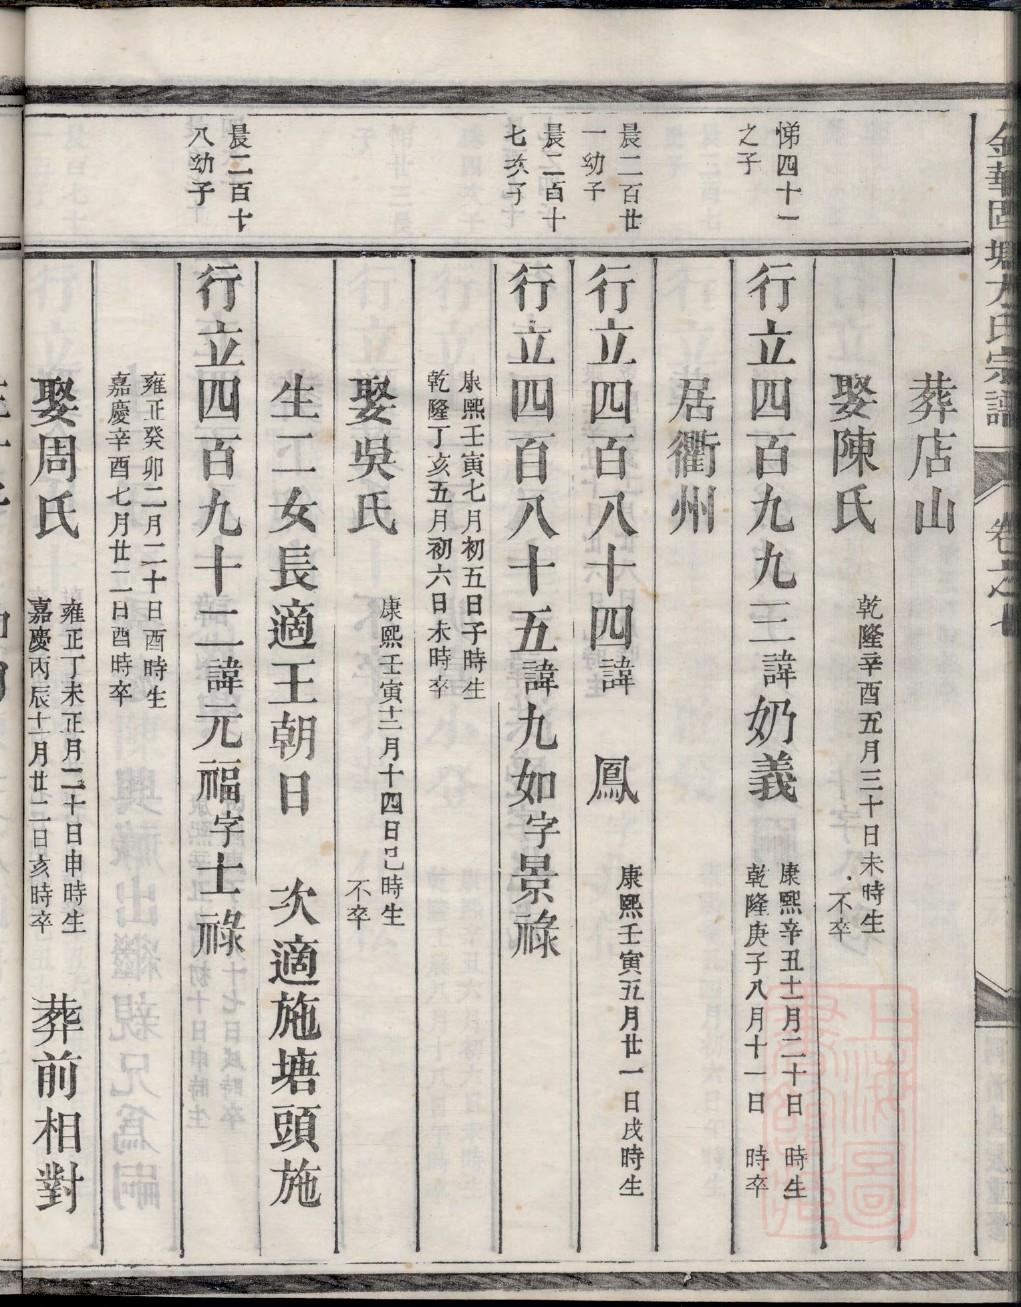 金華固塘方氏宗譜 卷之七
葬店山
娶陳氏
乾隆辛酉五月三十日未時生
不卒
悌四十一
之子
行立四百九九三諱奶義
康熙辛丑十一月二十日 時生
乾隆庚子八月十一日 時卒
居衢州
晨二百廿
一幼子
行立四百八十四諱 鳳
康熙壬寅五月廿一日戌時生
晨二百十
七次子
行立四百八十五諱九如字景祿
康熙壬寅七月初五日子時生
乾隆丁亥五月初六日未時卒
娶吳氏
康熙壬寅十二月十四日巳時生
不卒
生二女長適王朝日 次適施塘頭施
晨二百十
八幼子
行立四百九十一諱元福字士祿
雍正癸卯二月二十日酉時生
嘉慶辛酉七月廿二日酉時卒
娶周氏
雍正丁未正月二十日申時生
嘉慶丙辰十一月廿二日亥時卒
葬前相對